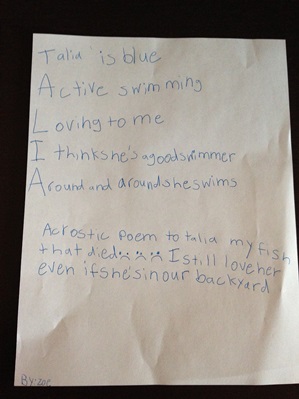 Talia is blue
Active swimming
Loving to me
I thinkshe's agoodswimmer
Around and aroundsheswims
Acrostic Poem to talia my fish
that died I still loveher
even ifshe'sinour backyard
By: zoe